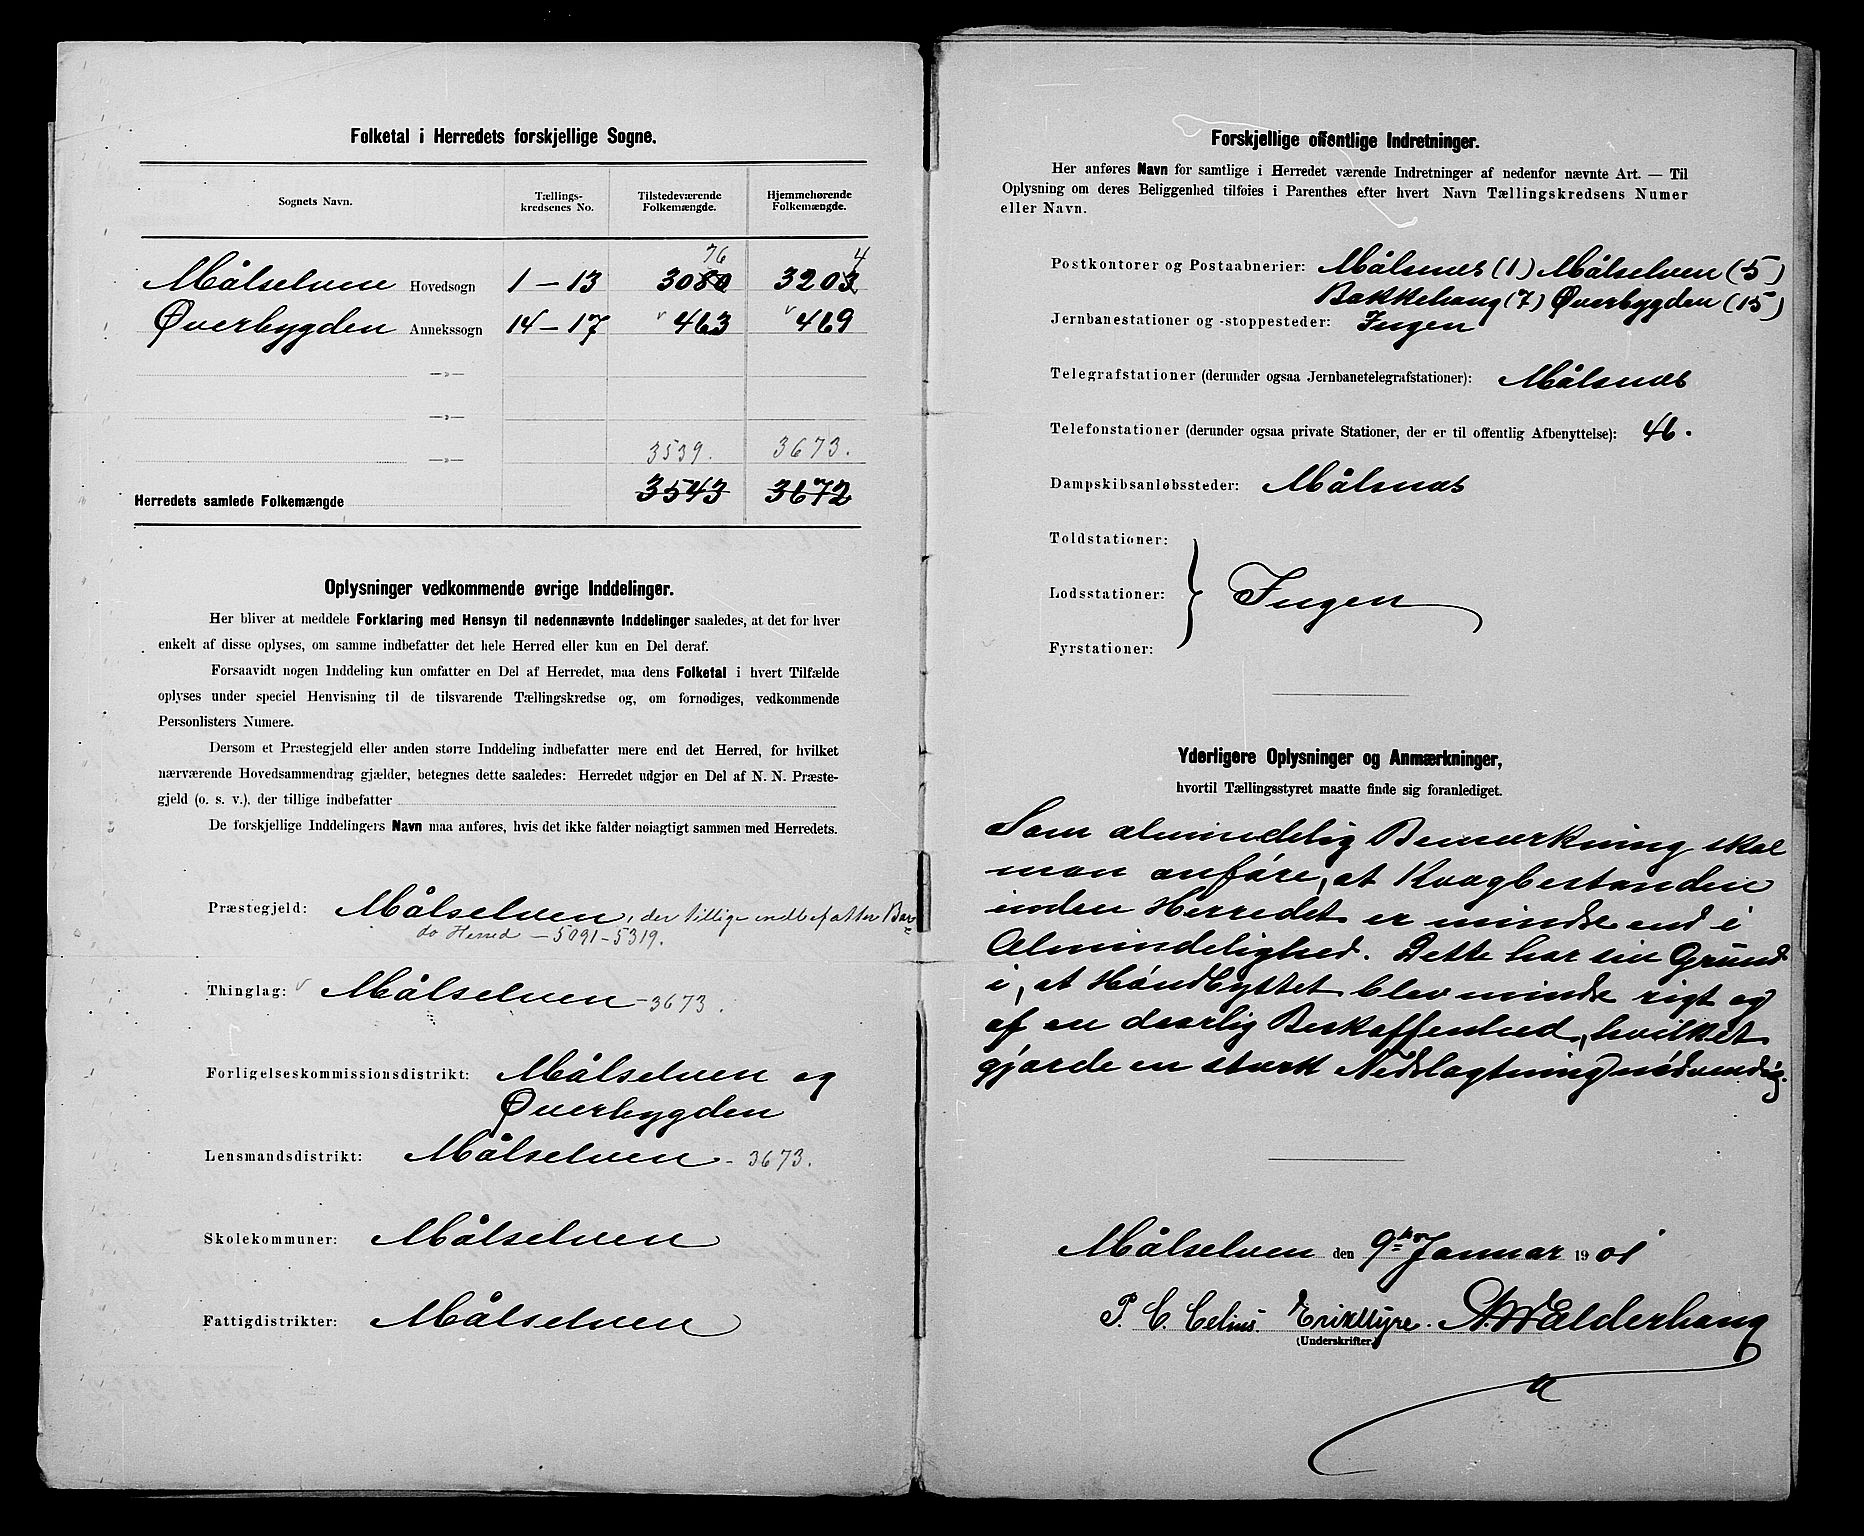 Folketal i Herredets forskjellige Sogne.
Sognets Navn. Tællings-kredsenes No. Tilstedeværende Folkemængde. Hjemmehørende Folkemængde.
76 4
Målselven Hovedsogn 1 – 13 3080 3203
Øverbygden Annekssogn 14 – 17 463 469
—»—
—»—
—»— 3539. 3673.
Herredets samlede Folkemængde 3543 3672
Oplysninger vedkommende øvrige Inddelinger.
Her bliver at meddele Forklaring med Hensyn til nedennævnte Inddelinger saaledes, at det for hver
enkelt af disse oplyses, om samme indbefatter det hele Herred eller kun en Del deraf.
Forsaavidt nogen Inddeling kun omfatter en Del af Herredet, maa dens Folketal i hvert Tilfælde
oplyses under speciel Henvisning til de tilsvarende Tællingskredse og, om fornødiges, vedkommende
Personlisters Numere.
Dersom et Præstegjeld eller anden større Inddeling indbefatter mere end det Herred, for hvilket
nærværende Hovedsammendrag gjælder, betegnes dette saaledes: Herredet udgjør en Del af N. N. Præste-
gjeld (o. s. v.), der tillige indbefatter
De forskjellige Inddelingers Navn maa anføres, hvis det ikke falder nøiagtigt sammen med Herredets.
Præstegjeld: Målselven, der tillige indbefatter Bar=
do Herred – 5091 – 5319.
Thinglag: Målselven – 3673.
Forligelseskommissionsdistrikt: Målselven og
Øverbygden
Lensmandsdistrikt: Målselven – 3673.
Skolekommuner: Målselven
Fattigdistrikter: Målselven
Forskjellige offentlige Indretninger.
Her anføres Navn for samtlige i Herredet værende Indretninger af nedenfor nævnte Art. — Til
Oplysning om deres Beliggenhed tilføies i Parenthes efter hvert Navn Tællingskredsens Numer
eller Navn.
Postkontorer og Postaabnerier: Målsnes (1) Målselven (5)
Bakkehaug (7) Øverbygden (15)
Jernbanestationer og -stoppesteder: Ingen
Telegrafstationer (derunder ogsaa Jernbanetelegrafstationer): Målsnæs
Telefonstationer (derunder ogsaa private Stationer, der er til offentlig Afbenyttelse): 46.
Dampskibsanløbssteder: Målsnæs
Toldstationer:
Lodsstationer: Ingen
Fyrstationer:
Yderligere Oplysninger og Anmærkninger,
hvortil Tællingsstyret maatte finde sig foranlediget.
Som almindelig Bemærkning skal
man anføre, at Kvægbestanden
inden Herredet er mindre end i
Almindelighed. Dette har sin Grund
i, at Høudbyttet blev mindre rigt og
af en daarlig Beskaffenhed, hvilket
gjørde en stærk Nedslagtning nødvendig.
Målselven den 9de Januar 1901
P. C. Celius. Erik Styre. Walderhaug
(Underskrifter)